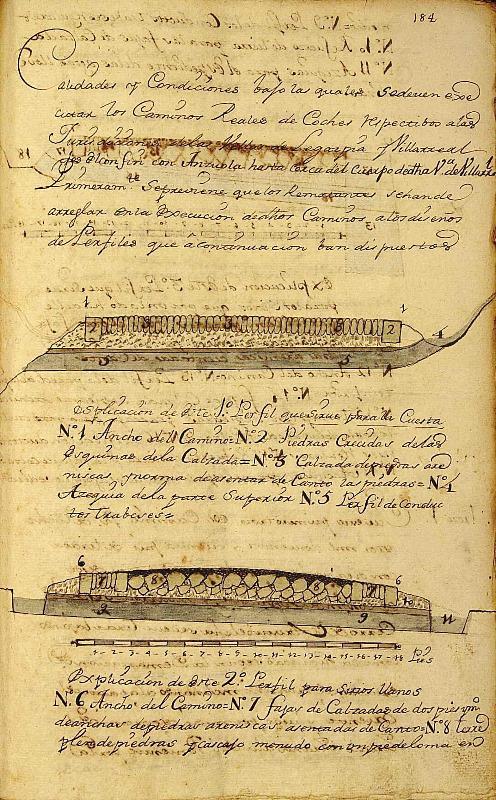 184
Calidades y Condiciones bajo las quales se deven exe
cutar los Caminos Reales de Coches respectibos a las
Jurisdiciones de las Villas de Legazpia y Villarreal
desde el confin con Anzuola hasta cerca del Cuerpo de dha Va. de Villarrl.
Primeramte. Se previene que los Rematantes se han de
arreglar en la execucion de dhos Caminos a los diseños
de Perfiles que a continuacion ban dispuestos
1 1
2 3 3 2 4
5 5
Esplicacion de este 1o. Perfil que sirve para Cuesta
No. 1 Ancho del Camino = No. 2 Piedras Crecidas de las
Esquinas de la Calzada = No. 3 Calzada de piedras are
niscas, y norma de asentar de Canto las piedras = No. 4
Azequia de la parte Superior No. 5 Perfil de Conduc
tos trabeses =
6 6
7 8 8 7
9 9 11
1 2 3 4 5 6 7 8 9 10 11 12 13 14 15 16 17 18 Pies
Explicacion de este 2o. Perfil para Sitios llanos
No. 6 Ancho del Camino = No. 7 fajas de Calzadas de dos pies
de anchas de piedras areniscas asentadas de Canto = No. 8 terre
plen de piedras y cascajo menudo con un pie de loma en